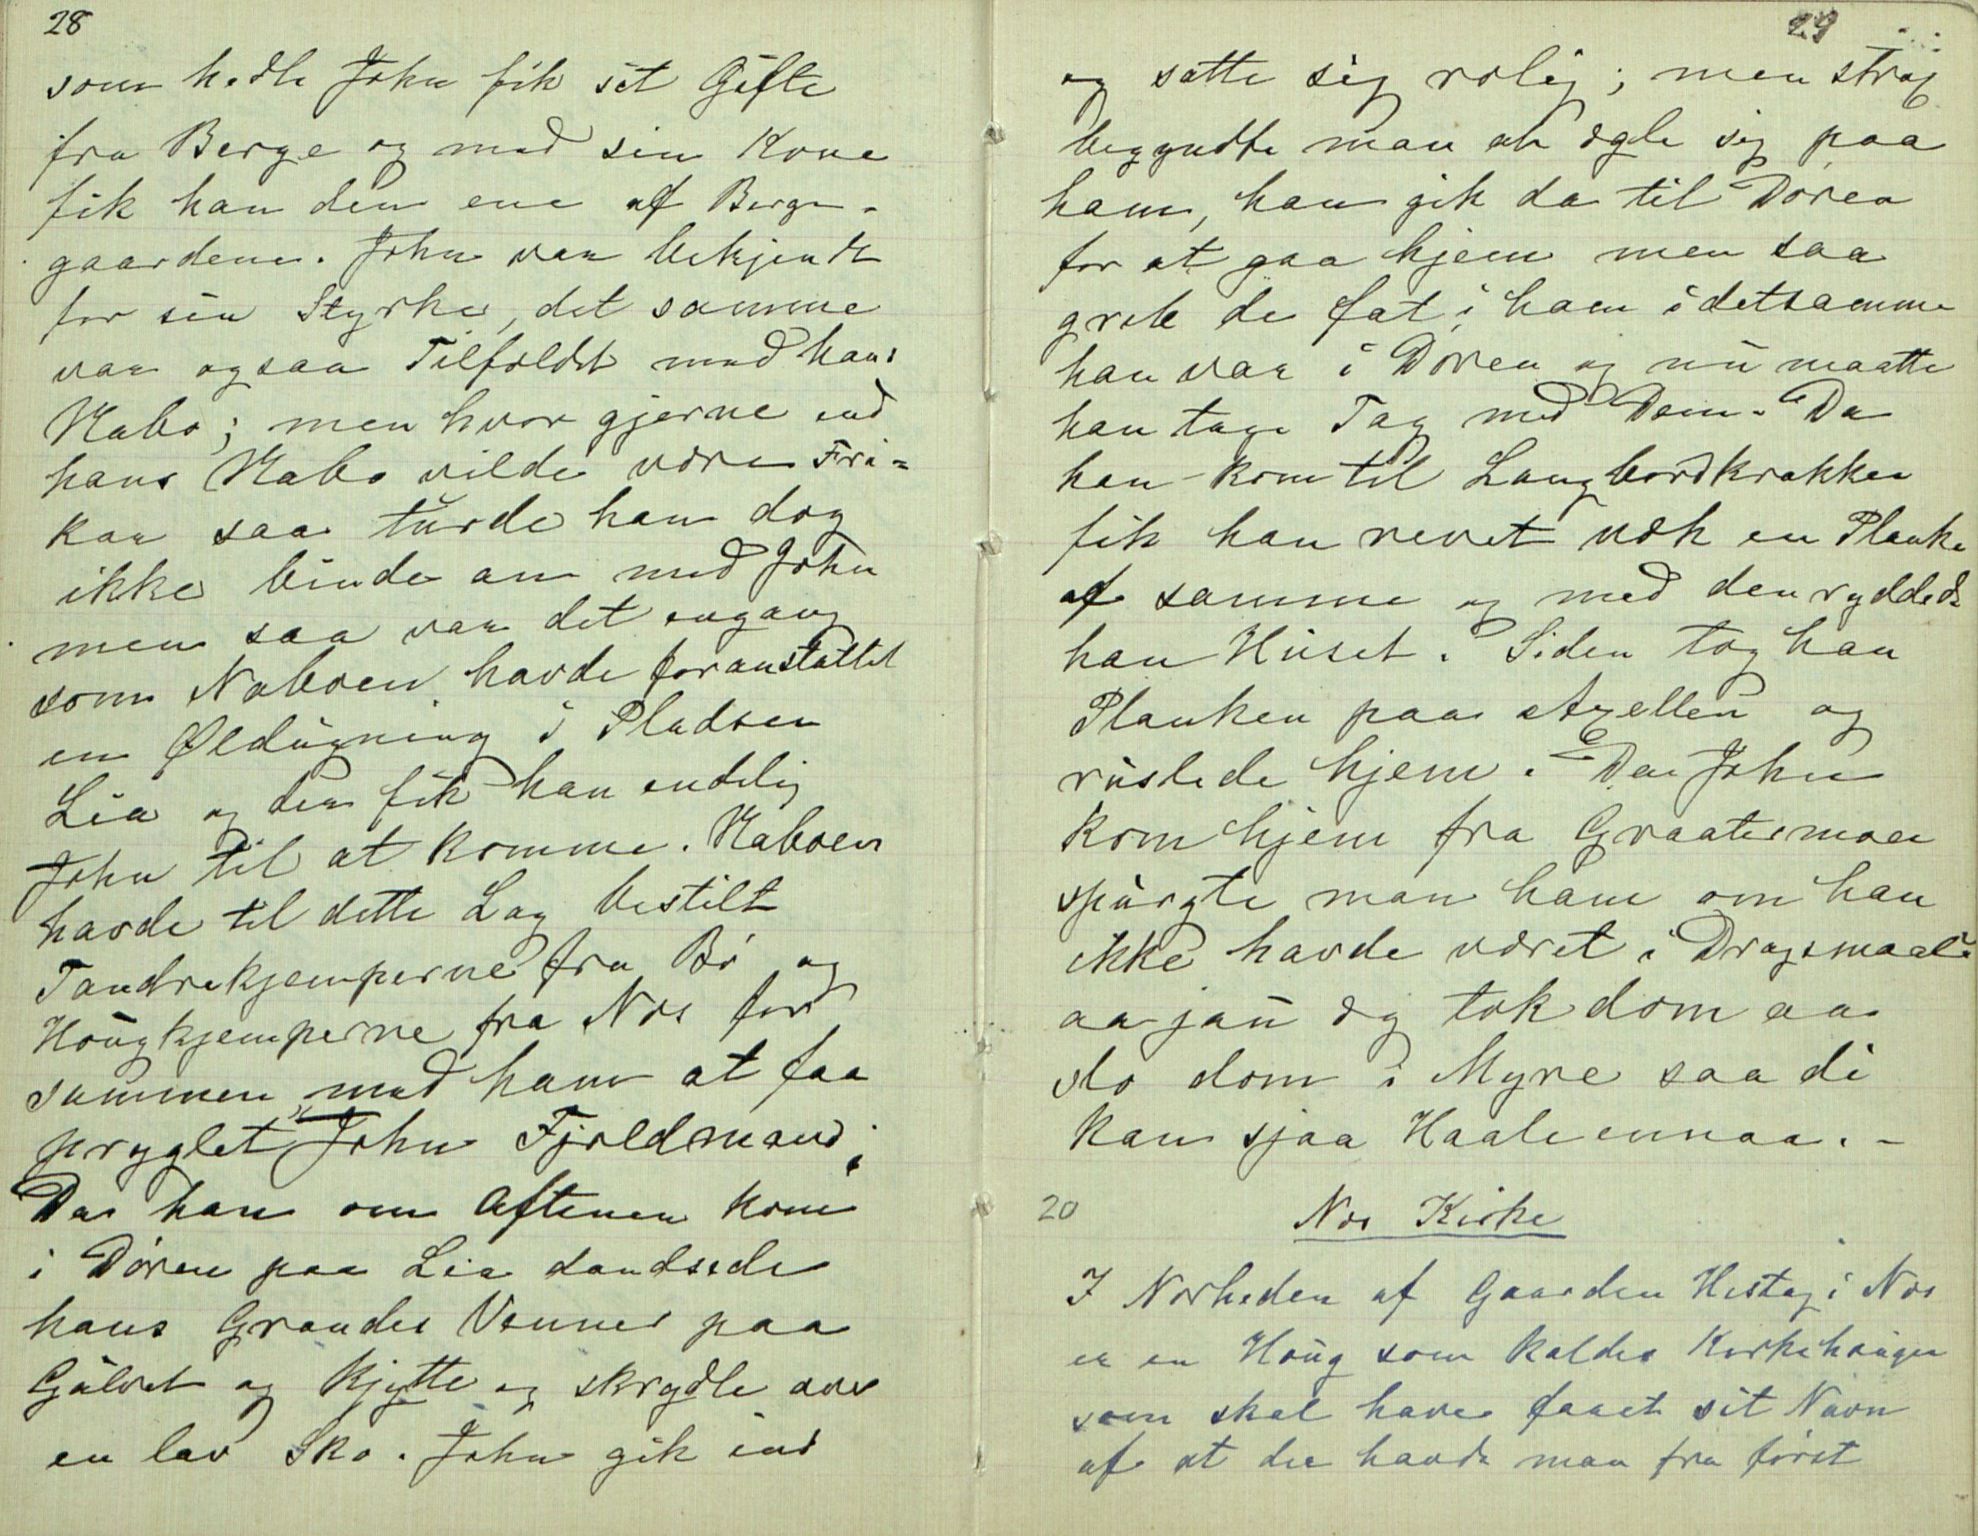 28
som hedte John fik sit Gifte
fra Berge og med sin Kone
fik han den ene af Berge-
gaardene. John var bekjendt
for sin Styrke, det samme
var ogsaa Tilfældet med hans
Nabo; men hvor gjerne end
hans Nabo vilde være Fri=
kar saa turde han dog
ikke binde an med John
men saa var det engang
som Naboen havde foranstaltet
en Øldugning i Pladsen
Lia og der fik han endelig
John til at komme. Naboen
havde til dette Lag bestilt
Tandrekjemperne fra Bø og
Hougkjemperne fra Nes for
sammen med ham at faa
pryglet John Fjeldmand;
Da han om Aftenen kom
i Døren paa Lia dandsede
hans Grandes Venner paa
Gulvet og kjytte og skrydle av
en lav Sko. John gik ind
29
og satte sig rolig; men strax
begyndte man at øgle sig paa
ham, han gik da til Døren
for at gaa hjem men saa
greb de fat i ham idetsamme
han var i Døren og nu maatte
han tage Tag med Dem. Da
han kom til Langbordkrakken
fik han revet væk en Planke
af samme og med den ryddede
han Huset. Siden tog han
Planken paa Axellen og
ruslede hjem. Da John
kom hjem fra Graatenmoen
spurgte man ham om han
ikke havde været i Dragsmaal.
aa jau eg tok dom aa
slo dom i Myre saa di
kan sjaa Haale ennaa. -
20 Nes Kirke
I Nærheden af Gaarden Hesteg i Nes
er en Houg som kaldes Kirkehaugen
som skal have faaet sit Navn
af at der havde man fra først